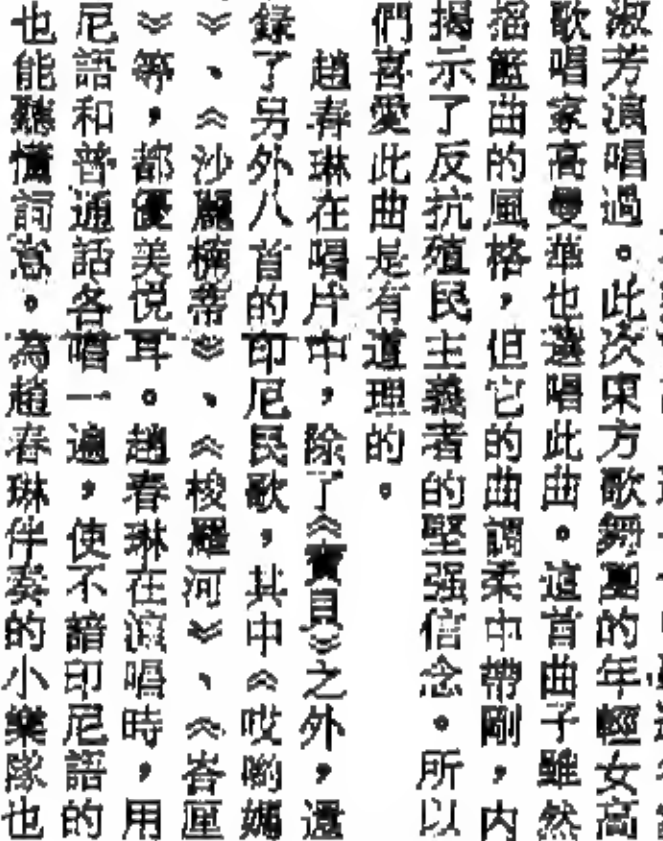 淑芳演唱過。此次東方歌舞團的年輕女高
歌唱家高曼華也選唱此曲。這首曲子雖然
搖籃曲的風格，但它的曲調柔中帶剛，内
揭示了反抗殖民主義者的堅强信念。所以
們喜愛此曲是有道理的。
趙春琳在唱片中，除了《寶貝》之外，還
錄了另外八首的印尼民歌，其中《哎喲媽
》、《沙麗楠蒂》、《梭羅河》、《峇厘
》等，都優美悦耳。趙春琳在演唱時，用
尼語和普通話各唱一遍，使不諳印尼語的
也能聽懂詞意。為趙春琳伴奏的小樂隊也